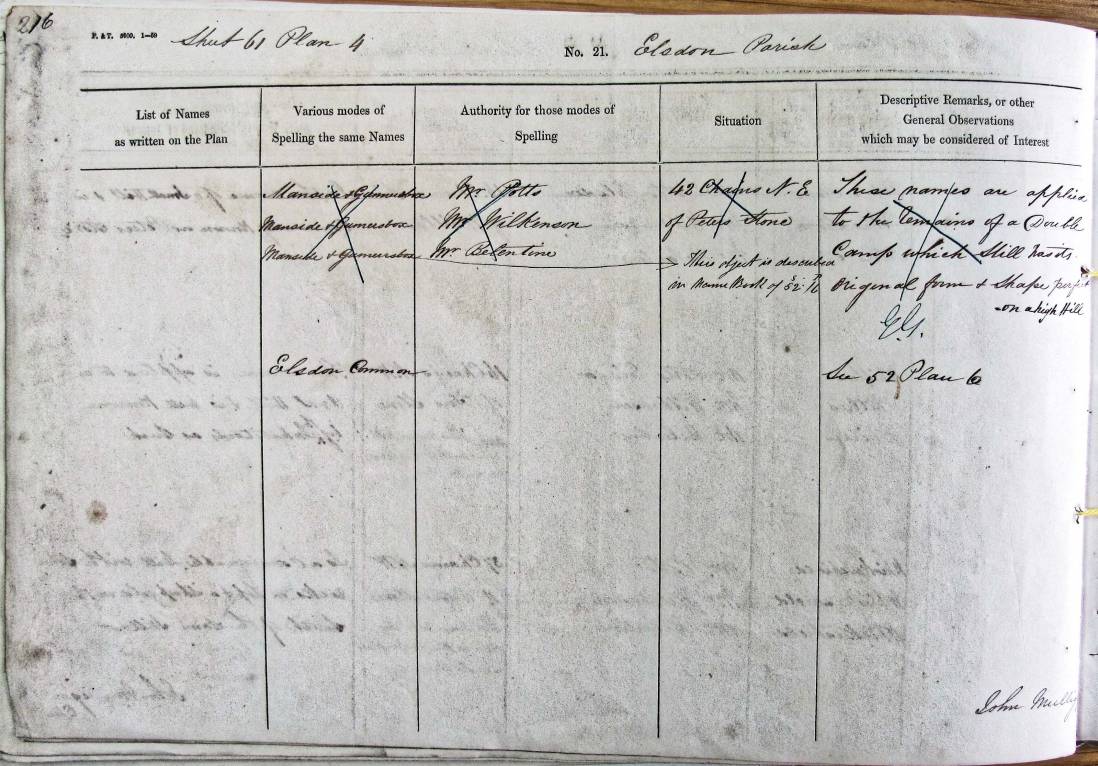 216
P. & T. 5000. 1—59
Sheet 61 Plan 4
No. 21. Elsdon Parish
List of Names
as written on the Plan
Various modes of
Spelling the same Names
Authority for those modes of
Spelling
Situation
Descriptive Remarks, or other
General Observations
which may be considered of Interest
Manside &
Manside &
Manside &
Mr Potts
Mr Wilkinson
Mr Belentine
42 Chains N. E
of Peters Stone
This object is described
in Name Book of 52.
These names are applied
to the remains of a Double
Camp which Still has its
Original form & Shape perfect
on a high Hill
G.G.
Elsdon Common
See 52 Plan 6
John